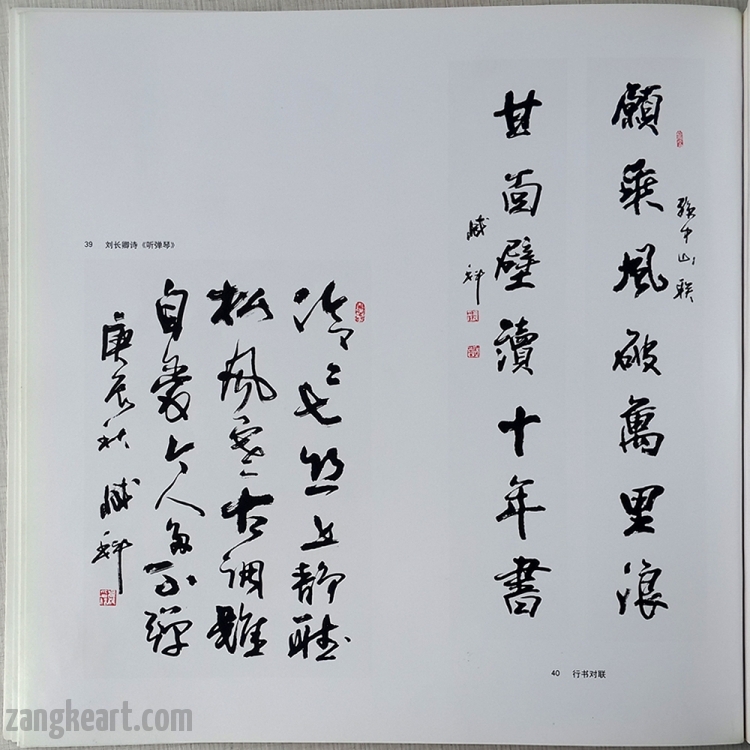 願乘風破萬里浪
孫中山联
甘面壁讀十年書
臧科
40 行书对联
39 刘长卿诗《听弹琴》
泠泠七丝上静聴
松風寒古调雖
自愛今人多不弹
庚辰秋 臧科
zangkeart.com